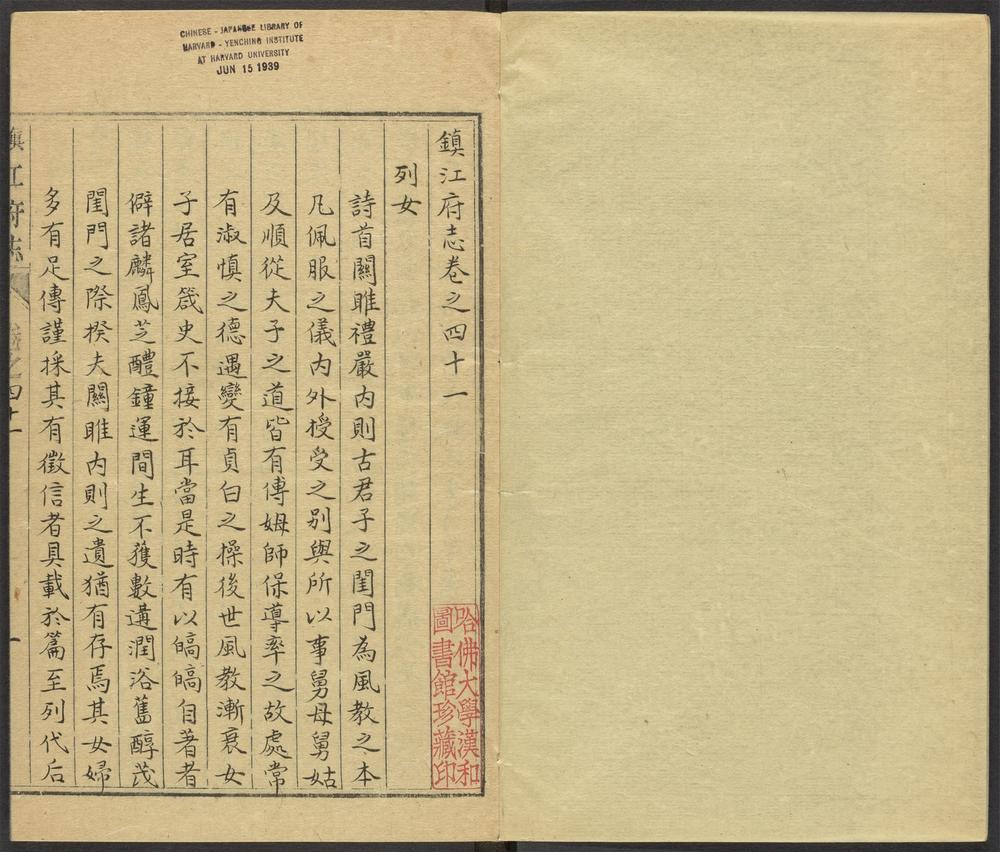 CHINESE - JAPANESE LIBRARY OF
HARVARD - YENCHING INSTITUTE
AT HARVARD UNIVERSITY
JUN 15 1939
鎮江府志卷之四十一
列女
詩首關雎禮嚴内則古君子之閨門為風教之本
凡佩服之儀内外授受之别與所以事舅母舅姑
及順從夫子之道皆有傅姆師保導率之故處常
有淑慎之德遇變有貞白之操後世風教漸衰女
子居室箴史不接於耳當是時有以皜皜自著者
僻諸麟鳳芝醴鐘運間生不獲數遘潤浴舊醇茂
閨門之際揆夫關雎内則之遺猶有存焉其女婦
多有足傳謹採其有徵信者具載於篇至列代后
鎮江府志
卷之四十一
一
哈佛大學漢和
圖書館珍藏印